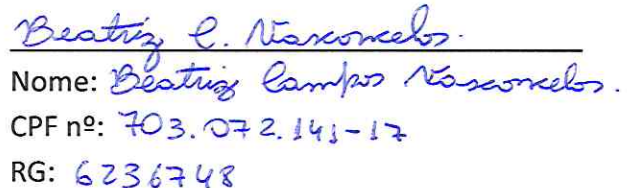 Beatriz C. Vasconcelos.
Nome: Beatriz Campos Vasconcelos.
CPF nº: 703.072.141-17
RG: 6236748